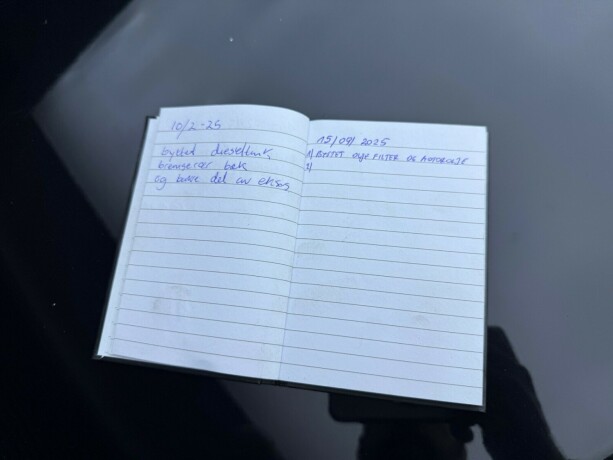 10/2-25
byttet dieseltank,
bremserør bak
og bakre del av eksos
15/09/2025
1) BYTTET OLJE FILTER OG MOTOROLJE
2)